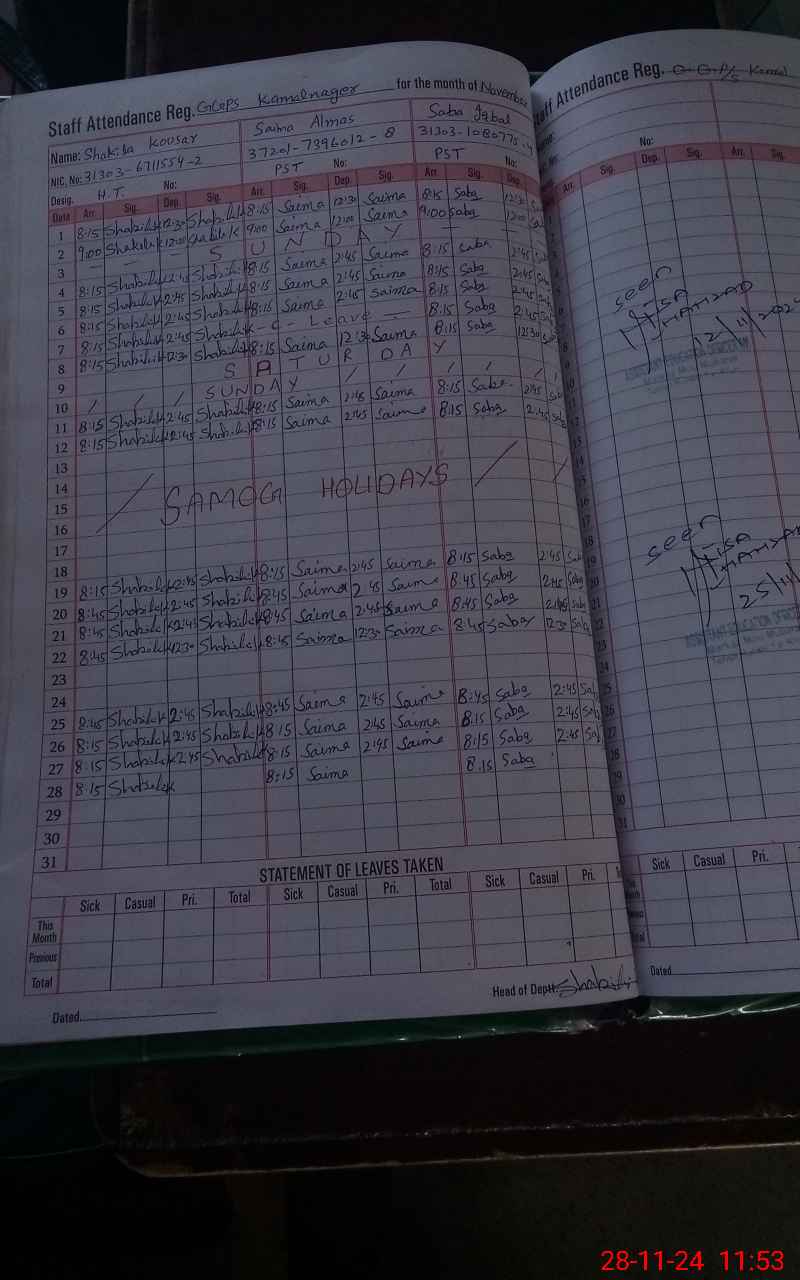 Staff Attendance Reg. GGPS Kamalnager for the month of November
Name: Shakila Kousar Saima Almas Saba Iqbal
NIC. No: 31303-6711554-2 37201-7396012-8 31303-1080775-
Desig. H.T. No: PST No: PST No:
Date Arr. Sig. Dep. Sig. Arr. Sig. Dep. Sig. Arr. Sig. Dep.
1 8:15 Shakila K 12:30 Shakila K 8:15 Saima 12:30 Saima 8:15 Saba 12:30
2 9:00 Shakila K 12:00 Shakila K 9:00 Saima 12:00 Saima 9:00 Saba 12:00
3 SUNDAY
4 8:15 Shakila K 2:45 Shakila K 8:15 Saima 2:45 Saima 8:15 Saba 2:45
5 8:15 Shakila K 2:45 Shakila K 8:15 Saima 2:45 Saima 8:15 Saba 2:45
6 8:15 Shakila K 2:45 Shakila K 8:15 Saima 2:45 Saima 8:15 Saba 2:45
7 8:15 Shakila K 2:45 Shakila K - C - Leave - 8:15 Saba 2:45
8 8:15 Shakila K 12:30 Shakila K 8:15 Saima 12:30 Saima 8:15 Saba 12:30
9 SATURDAY
10 / / / SUNDAY / / / / /
11 8:15 Shakila K 2:45 Shakila K 8:15 Saima 2:45 Saima 8:15 Saba 2:45
12 8:15 Shakila K 2:45 Shakila K 8:15 Saima 2:45 Saima 8:15 Saba 2:45
13
14
15 / SAMOG HOLIDAYS /
16
17
18
19 8:15 Shakila K 2:45 Shakila K 8:15 Saima 2:45 Saima 8:15 Saba 2:45
20 8:45 Shakila K 2:45 Shakila K 8:45 Saima 2:45 Saima 8:45 Saba 2:45
21 8:45 Shakila K 2:45 Shakila K 8:45 Saima 2:45 Saima 8:45 Saba 2:45
22 8:45 Shakila K 12:30 Shakila K 8:45 Saima 12:30 Saima 8:45 Saba 12:30
23
24
25 8:45 Shakila K 2:45 Shakila K 8:45 Saima 2:45 Saima 8:45 Saba 2:45
26 8:15 Shakila K 2:45 Shakila K 8:15 Saima 2:45 Saima 8:15 Saba 2:45
27 8:15 Shakila K 2:45 Shakila K 8:15 Saima 2:45 Saima 8:15 Saba 2:45
28 8:15 Shakila K 8:15 Saima 8:15 Saba
29
30
31
STATEMENT OF LEAVES TAKEN
Sick Casual Pri. Total Sick Casual Pri. Total Sick Casual Pri.
This Month
Previous
Total
Dated
Head of Deptt. Shakila
Staff Attendance Reg. G.G.P/S Kamal
No:
Arr. Sig. Dep. Sig. Arr. Sig.
seen
12/11/202
seen
25/11/
Sick Casual Pri.
Dated
28-11-24 11:53